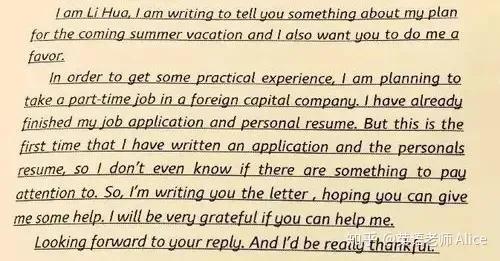 I am Li Hua, I am writing to tell you something about my plan
for the coming summer vacation and I also want you to do me a
favor.
In order to get some practical experience, I am planning to
take a part-time job in a foreign capital company. I have already
finished my job application and personal resume. But this is the
first time that I have written an application and the personals
resume, so I don't even know if there are something to pay
attention to. So, I'm writing you the letter , hoping you can give
me some help. I will be very grateful if you can help me.
Looking forward to your reply. And I'd be really thankful.
知乎 老师 Alice